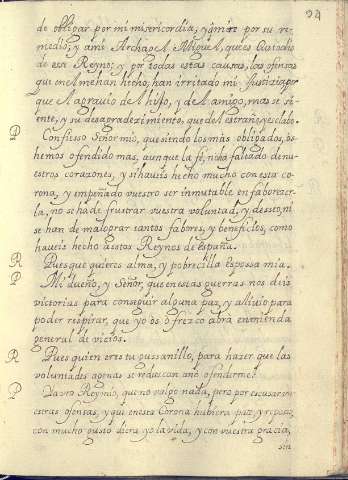 94
de obligar por mi misericordia, y gimire por su re-
medio; y a mi Archangel Miguel, que es Custodio
de ese Reyno; y por todas estas causas, las ofensas
que en el me han hecho, han irritado mi Justizia por
que el agrauio del hijo, y del amigo, mas se si-
ente, y su desagradezimiento, que del estraño, y esclabo.
P Confiesso Señor mio, que siendo los mas obligados, os
hemos ofendido mas, aunque la fe, no ha faltado de nu-
estros corazones, y si hauis hecho mucho con esta co-
rona, y empeñado vuestro ser inmutable en faborecer-
la, no se ha de frustrar vuestra voluntad, y desseo, ni
se han de malograr tantos fabores, y beneficios, como
haueis hecho a estos Reynos de España.
R Pues que quieres alma, y pobrecilla Esposa mia.
P Mi dueño, y Señor, que en estas guerras nos deis
victorias para conseguir alguna paz, y alliuio para
poder respirar, que yo os ofrezco abra enmienda
general de vicios.
R Pues quien eres tu pussanillo, para hazer que las
voluntades agenas se reduzcan a no ofenderme?
P Ya veo Rey mio, que no valgo nada, pero por escusar vu-
estras ofensas, y que en esta Corona hubiera paz, y reposo,
con mucho gusto diera yo la vida, y con vuestra gracia,
sin